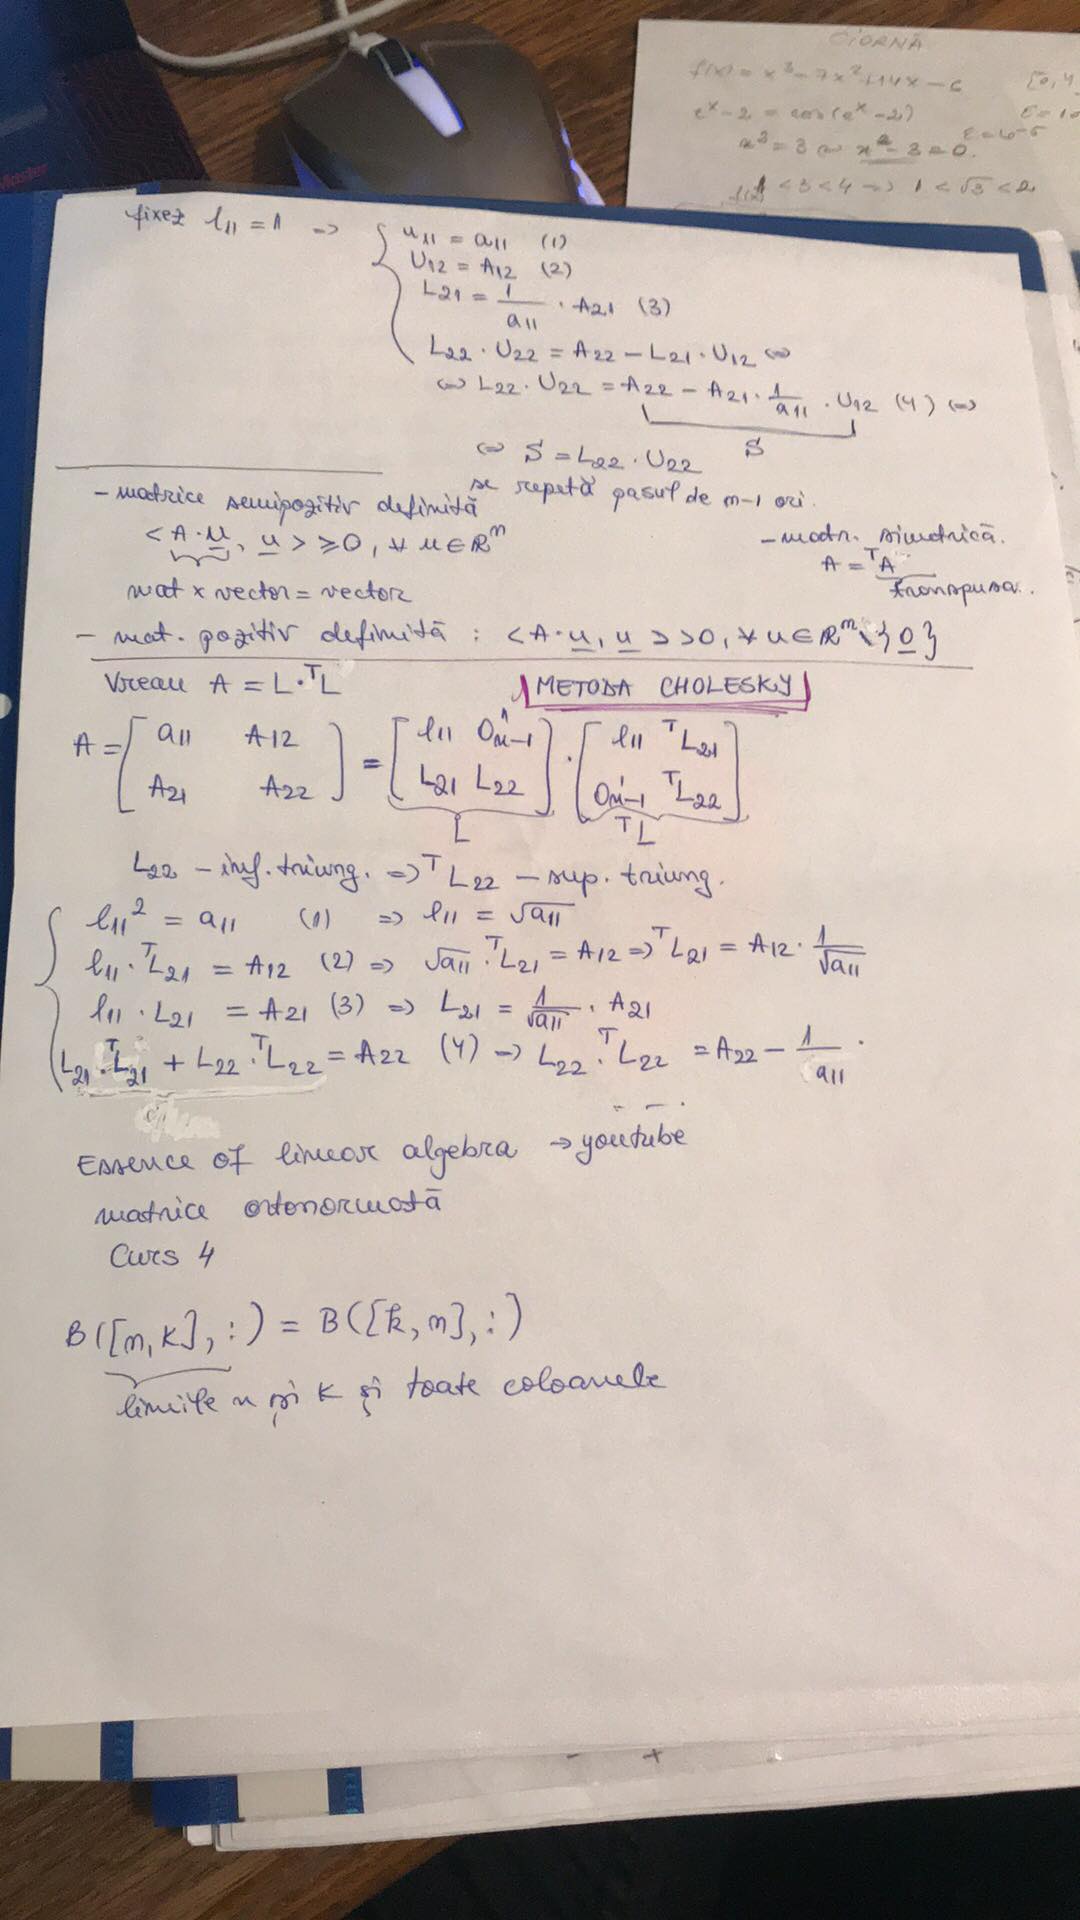 Master
GIORNĂ
f(x) = x³ - 7x² + 14x - 6 [0,4]
eˣ - 2 = cos(eˣ - 2)
1 < 3 < 4 => 1 < √3 < 2
fixez l₁₁ = 1 => { u₁₁ = a₁₁ (1)
U₁₂ = A₁₂ (2)
L₂₁ = 1/a₁₁ · A₂₁ (3)
L₂₂ · U₂₂ = A₂₂ - L₂₁ · U₁₂ <=>
<=> L₂₂ · U₂₂ = A₂₂ - A₂₁ · 1/a₁₁ · U₁₂ (4) <=>
S
<=> S = L₂₂ · U₂₂
se repetă pasul de m-1 ori.
- matrice semipozitiv definită
<A·u, u> ≥ 0, ∀ u ∈ ℝᵐ
mat x vector = vector
- matr. simetrică.
A = ᵀA
transpusa.
- mat. pozitiv definită : <A·u, u> > 0, ∀ u ∈ ℝᵐ \ {0}
Vreau A = L·ᵀL
METODA CHOLESKY
A = [a₁₁ A₁₂ ; A₂₁ A₂₂] = [l₁₁ 0¹ₙ₋₁ ; L₂₁ L₂₂] · [l₁₁ ᵀL₂₁ ; 0¹ₙ₋₁ ᵀL₂₂]
L ᵀL
L₂₂ - inf. triung. => ᵀL₂₂ - sup. triung.
l₁₁² = a₁₁ (1) => l₁₁ = √a₁₁
l₁₁ · ᵀL₂₁ = A₁₂ (2) => √a₁₁ · ᵀL₂₁ = A₁₂ => ᵀL₂₁ = A₁₂ · 1/√a₁₁
l₁₁ · L₂₁ = A₂₁ (3) => L₂₁ = 1/√a₁₁ · A₂₁
L₂₁ · ᵀL₂₁ + L₂₂ · ᵀL₂₂ = A₂₂ (4) => L₂₂ · ᵀL₂₂ = A₂₂ - 1/a₁₁ ·
Essence of linear algebra -> youtube
matrice ortonormată
Curs 4
B([m,k],:) = B([k,m],:)
liniile m și k și toate coloanele